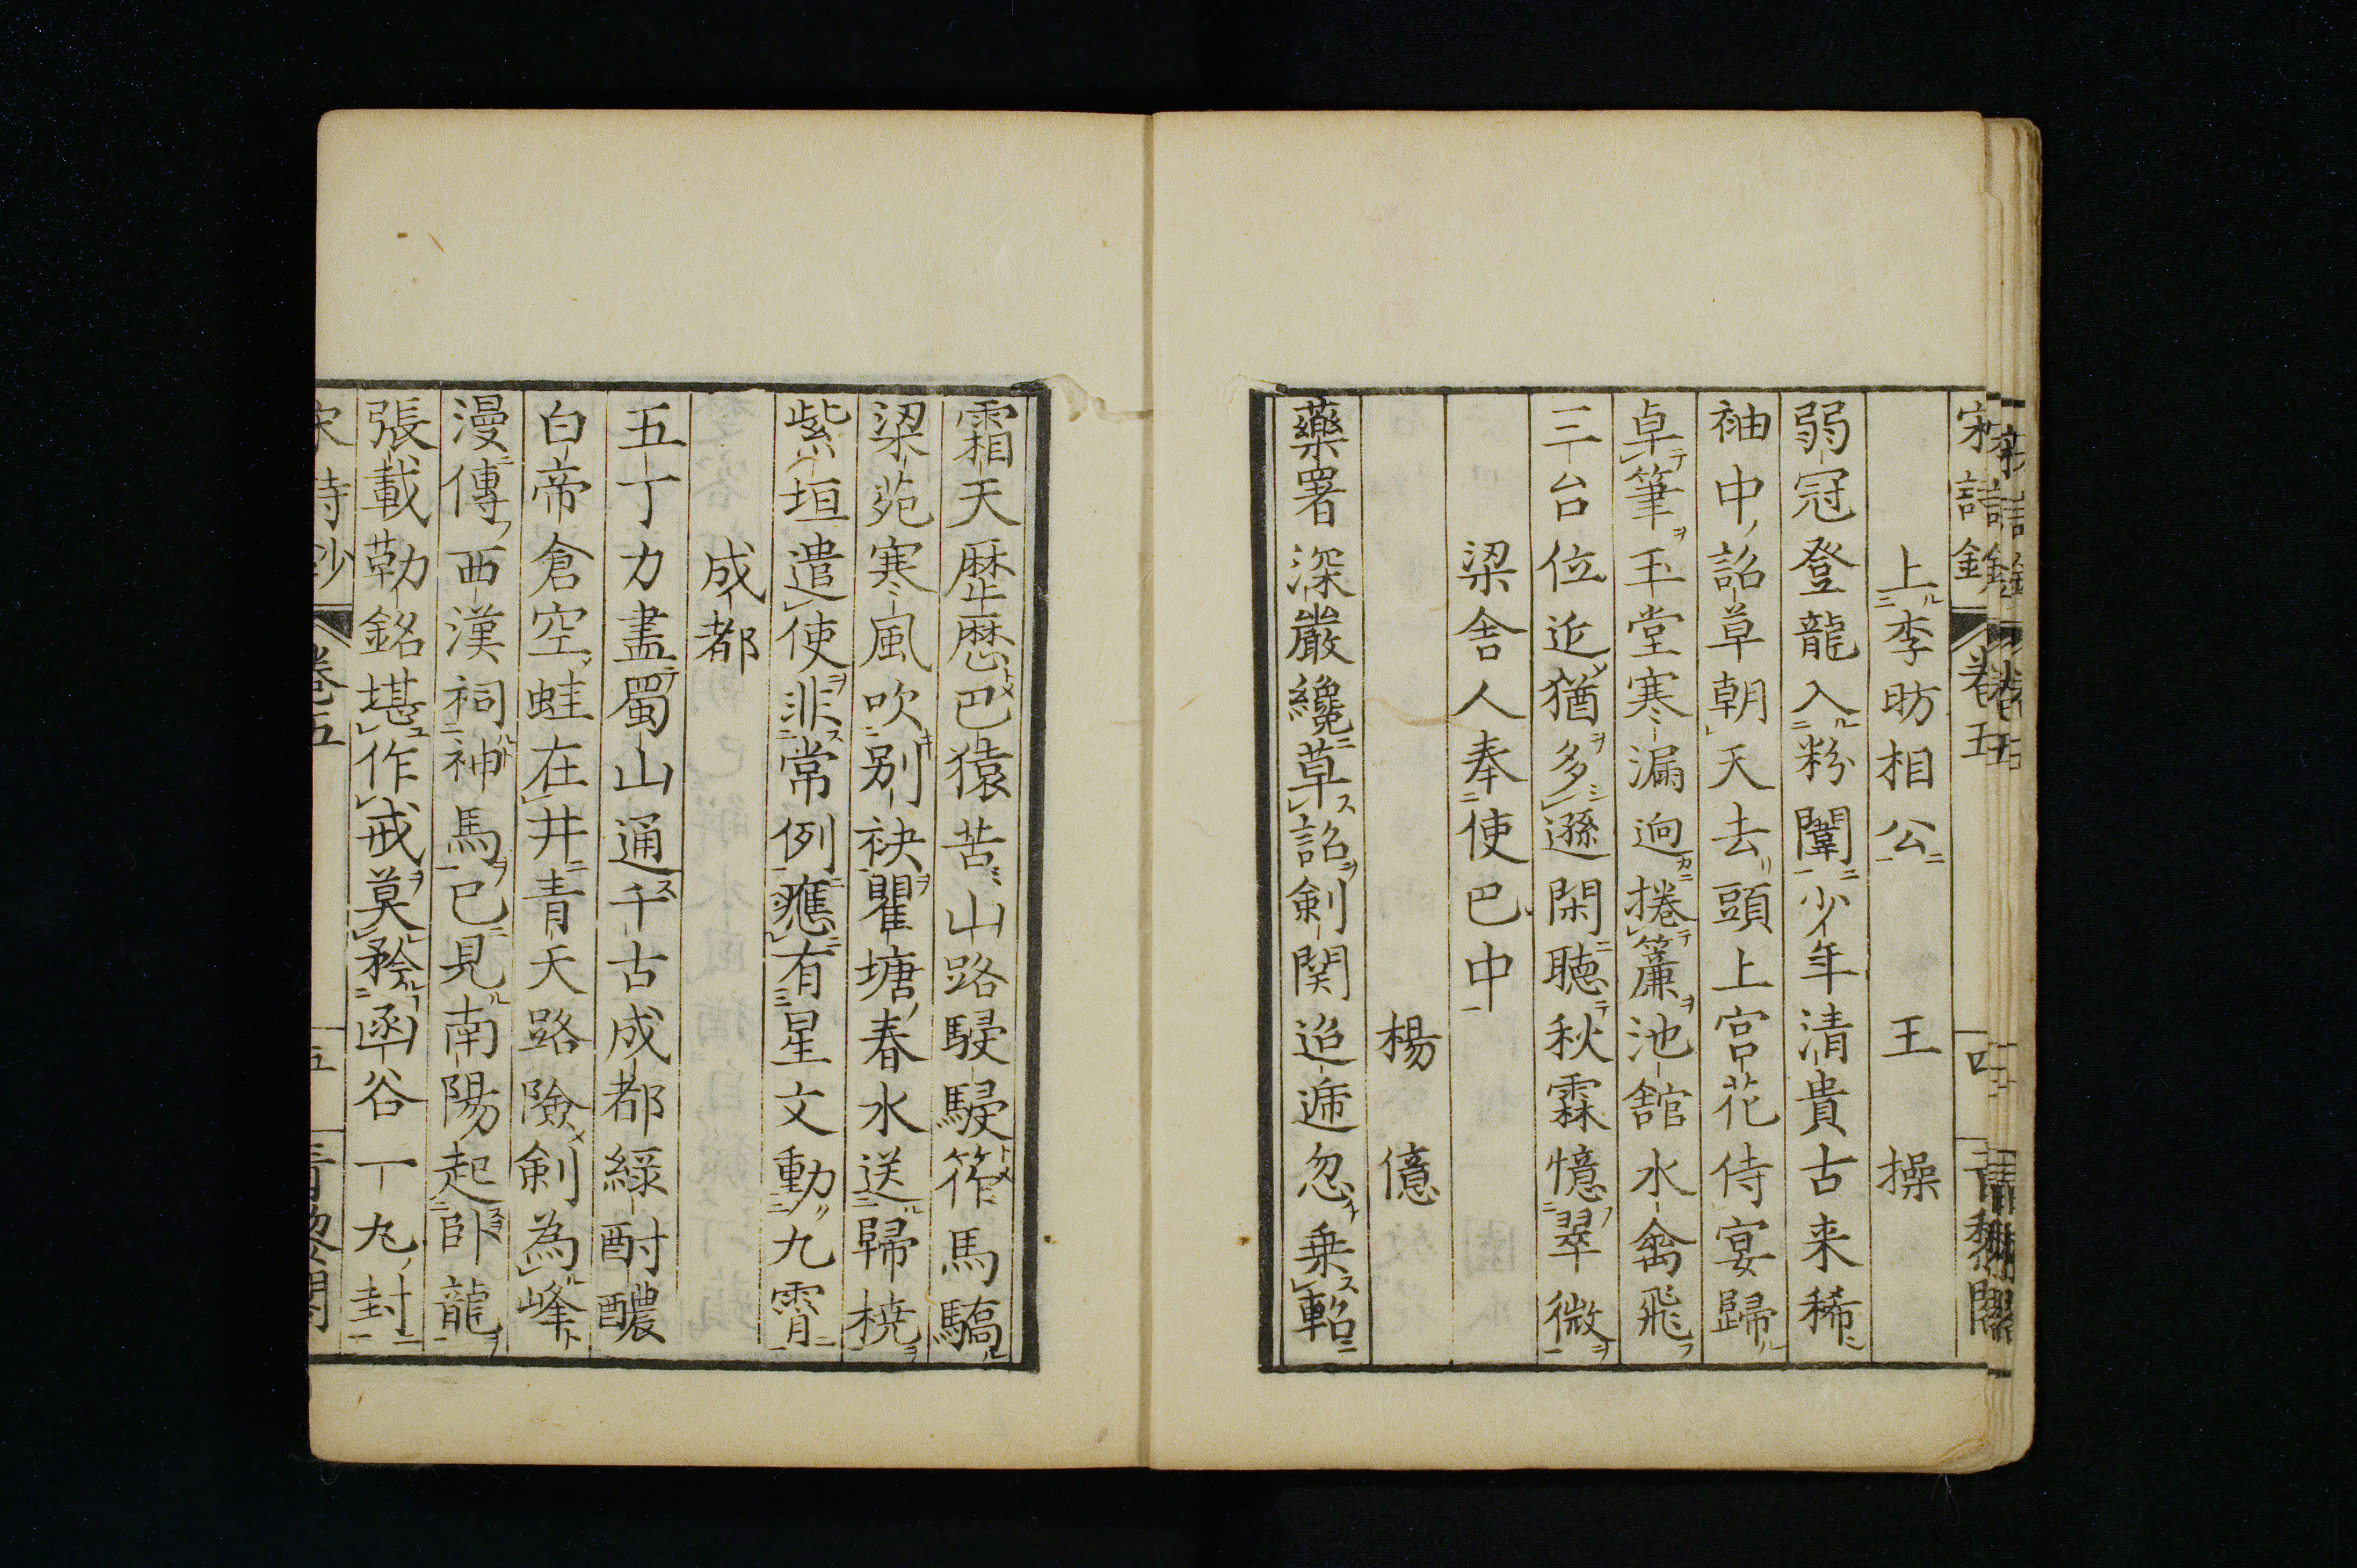 宋詩鈔 卷五 四 青藜閣
上李昉相公 王操
弱冠登龍入粉闈少年清貴古来稀
袖中詔草朝天去頭上宮花侍宴歸
卓筆玉堂寒漏逈捲簾池舘水禽飛
三台位近猶多遜閑聴秋霖憶翠微
梁舍人奉使巴中
楊億
藥署深嚴纔草詔劍関迢逓忽乗軺
霜天歷歷巴猿苦山路駸駸筰馬驕
梁苑寒風吹別袂瞿塘春水送歸橈
紫垣遣使非常例應有星文動九霄
成都
五丁力盡蜀山通千古成都綠酎醲
白帝倉空蛙在井青天路險劍為峰
漫傳西漢祠神馬已見南陽起卧龍
張載勒銘堪作戒莫矜函谷一丸封
宋詩鈔 卷五 五 青藜閣